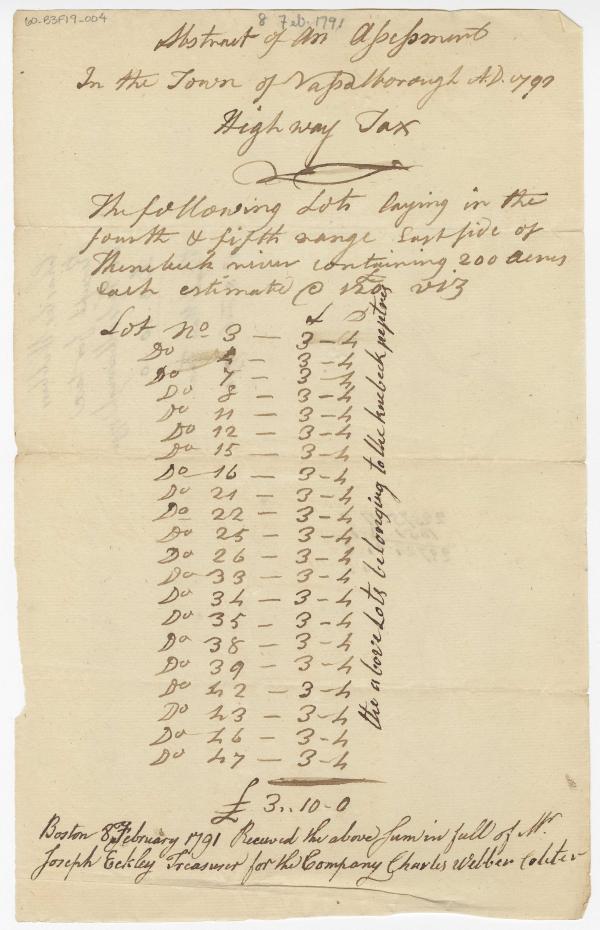 60-B3F19-004
8 Feb. 1791
Abstract of An Assessment
In the Town of Vassalborough A.D. 1790
High way Tax
The following Lots laying in the
fourth & fifth range East side of
Kenebeck river containing 200 Acres
Each estimate @ 120 viz
Lot No 3 — 3-4
Do 4 — 3-4
Do 7 — 3-4
Do 8 — 3-4
Do 11 — 3-4
Do 12 — 3-4
Do 15 — 3-4
Do 16 — 3-4
Do 21 — 3-4
Do 22 — 3-4
Do 25 — 3-4
Do 26 — 3-4
Do 33 — 3-4
Do 34 — 3-4
Do 35 — 3-4
Do 38 — 3-4
Do 39 — 3-4
Do 42 — 3-4
Do 43 — 3-4
Do 46 — 3-4
Do 47 — 3-4
the above Lots belonging to the kenebeck
£ 3.. 10-0
Boston 8 February 1791 Received the above sum in full of Mr.
Joseph Eckley Treasurer for the Company Charles Webber